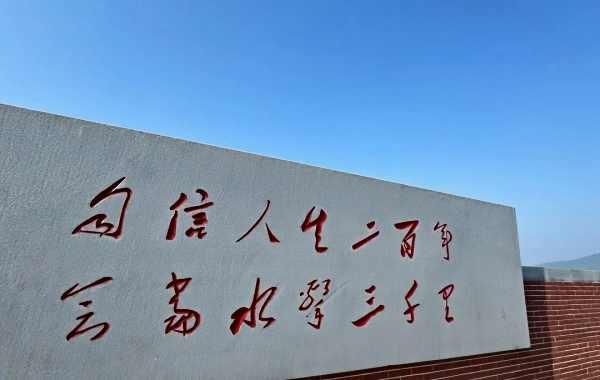 自信人生二百年
会當水擊三千里